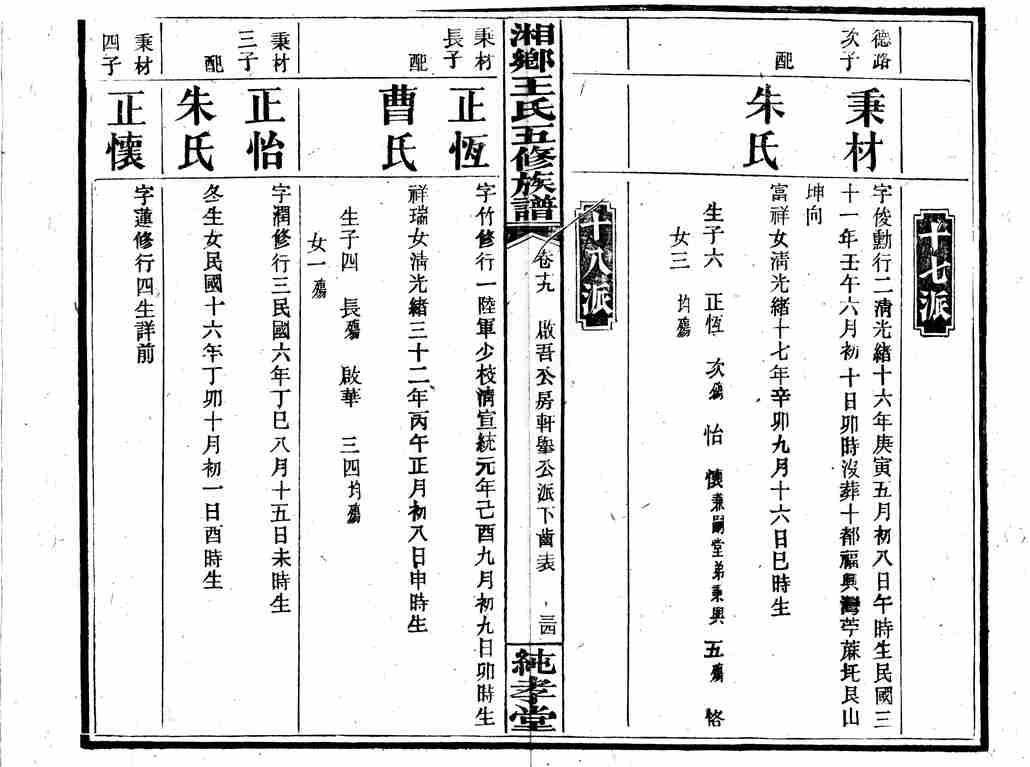 十七派
德路
次子
秉材
字俊勳行二清光緒十六年庚寅五月初八日午時生民國三
十一年壬午六月初十日卯時沒葬十都福興灣苧蔴圫艮山
坤向
配
朱氏
富祥女清光緒十七年辛卯九月十六日巳時生
生子六 正恆 次殤 怡 懷兼嗣堂弟秉興 五殤 恪
女三 均殤
十八派
湘鄉王氏五修族譜
卷十九 啟吾公房軒舉公派下齒表 三四
純孝堂
秉材
長子
正恆
字竹修行一陸軍少校清宣統元年己酉九月初九日卯時生
配
曹氏
祥瑞女清光緒三十二年丙午正月初八日申時生
生子四 長殤 啟華 三四均殤
女一殤
秉材
三子
正怡
字潤修行三民國六年丁巳八月十五日未時生
配
朱氏
冬生女民國十六年丁卯十月初一日酉時生
秉材
四子
正懷
字蓮修行四生詳前